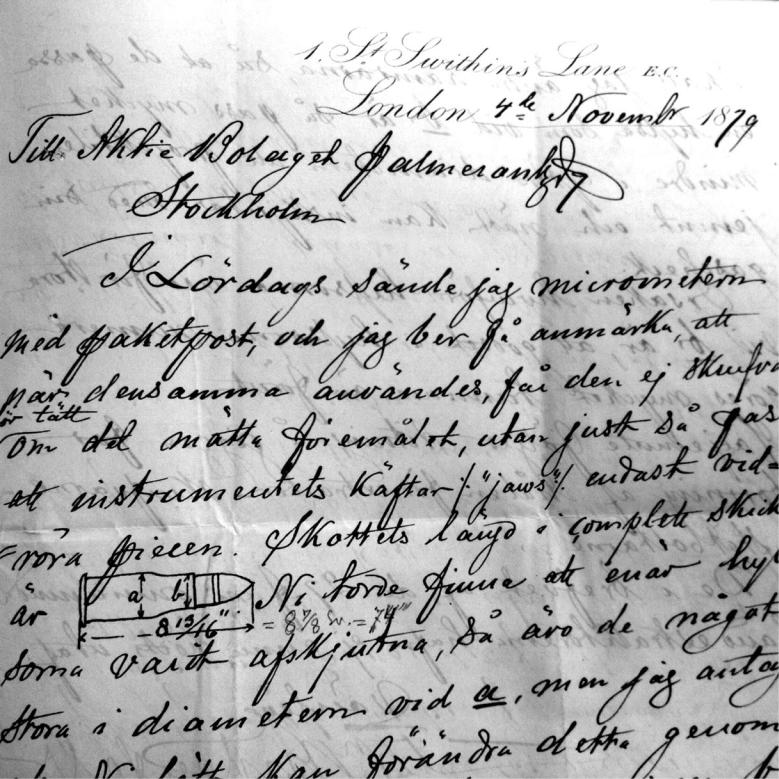 1, St Swithins Lane E.C.
London, 4de November 1879
Till Aktie Bolaget Palmcrantz
Stockholm
I Lördags sände jag micrometern
med paketpost, och jag ber få anmärka, att
när densamma användes, får den ej skrufva
är tätt
om det mätta föremålet, utan just så pas
att instrumentets käftar /: "jaws" :/ endast vid=
=röra piecen. Skottets längd i complett skick
är a b Ni torde finna att enär hyl
8 13/16" = 8 7/8 Sv. =
sorna varit afskjutna, så äro de något
stora i diametern vid a, men jag antag
Ni lätt kan förändra detta genom